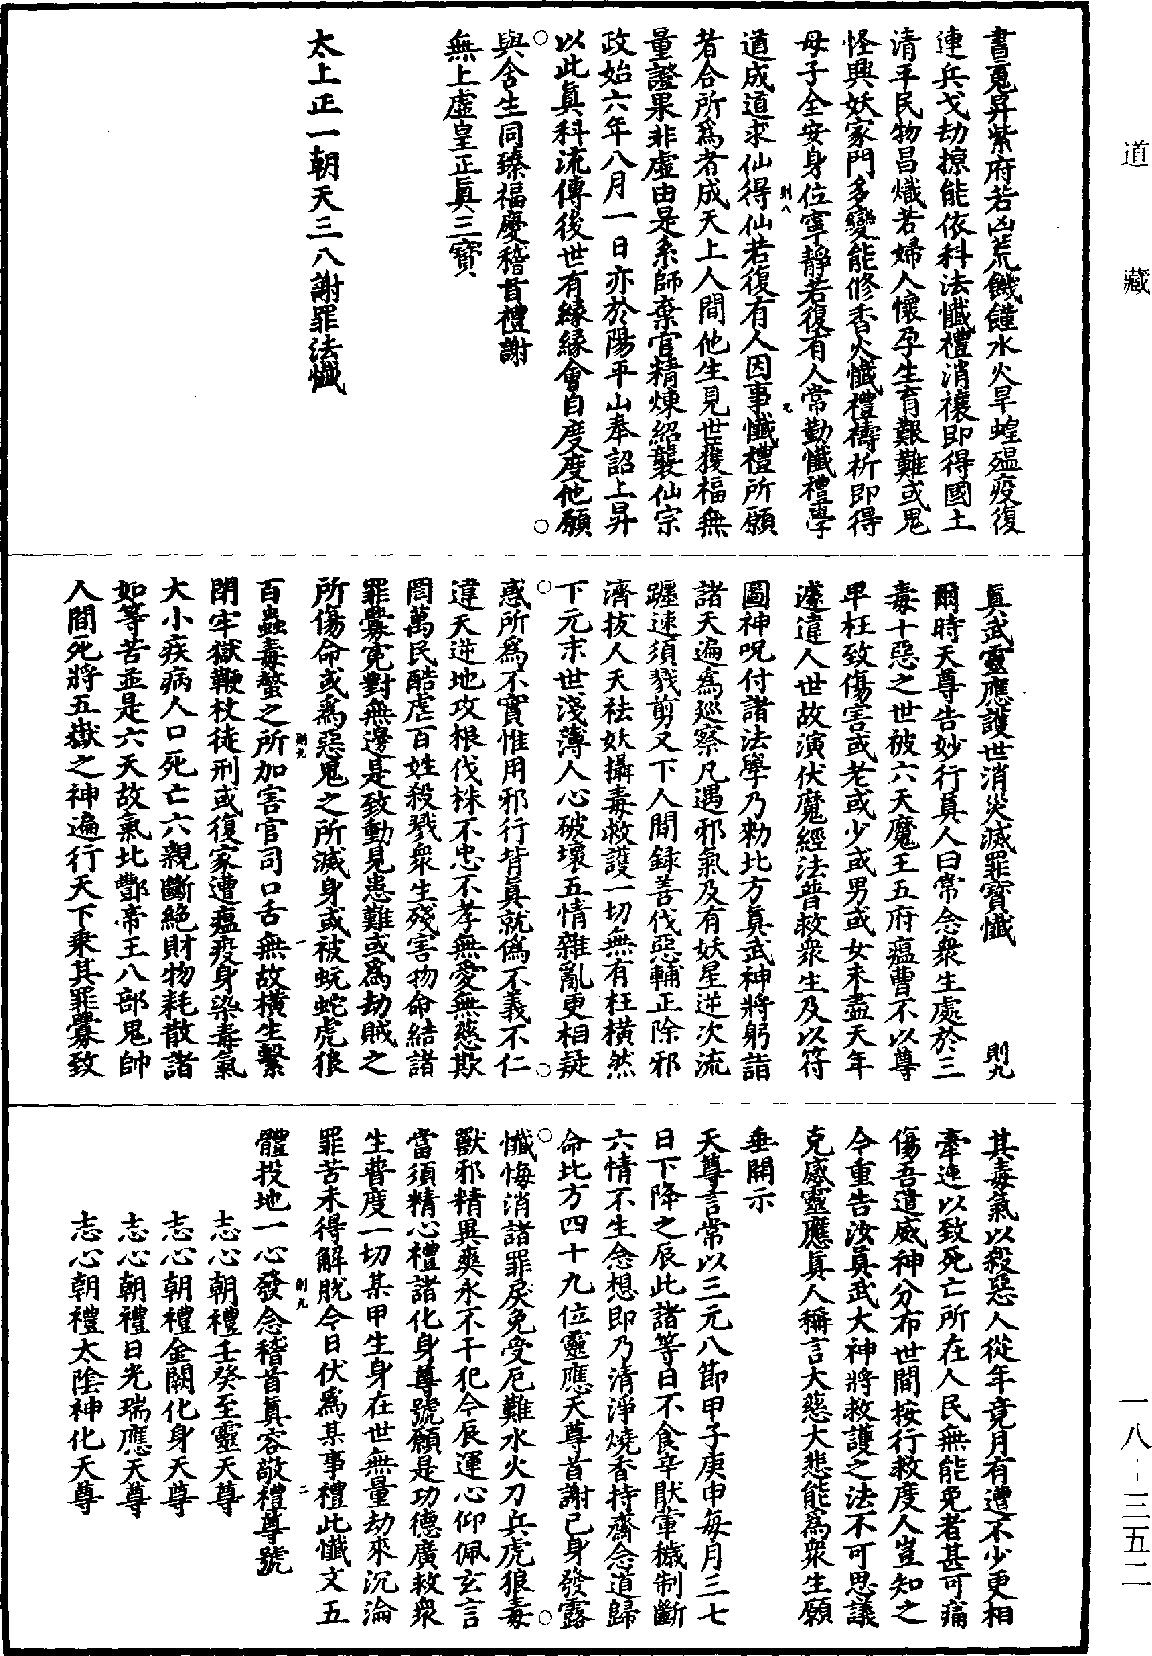 道藏
書冤昇紫府若凶荒饑饉水火旱蝗瘟疫復
連兵戈劫掠能依科法懺禮消禳即得國土
清平民物昌熾若婦人懷孕生育艱難或鬼
怪興妖家門多變能修香火懺禮禱祈即得
母子全安身位寧靜若復有人常勤懺禮學
則八
道成道求仙得仙若復有人因事懺禮所願
者合所為者成天上人間他生見世獲福無
量證果非虛由是系師棄官精煉紹襲仙宗
政始六年八月一日亦於陽平山奉詔上昇
以此真科流傳後世有緣緣會自度度他願
與含生同臻福慶稽首禮謝
無上虛皇正真三寶
太上正一朝天三八謝罪法懺
真武靈應護世消災滅罪寶懺　則九
爾時天尊告妙行真人曰常念眾生處於三
毒十惡之世被六天魔王五府瘟曹不以尊
卑枉致傷害或老或少或男或女未盡天年
遽違人世故演伏魔經法普救眾生及以符
圖神呪付諸法學乃勑北方真武神將躬詣
諸天遍為巡察凡遇邪氣及有妖星逆次流
躔速須戮剪又下人間錄善伐惡輔正除邪
濟拔人天祛妖攝毒救護一切無有枉橫然
下元末世淺薄人心破壞五情雜亂更相疑
惑所為不實惟用邪行背真就偽不義不仁
違天逆地攻根伐株不忠不孝無愛無慈欺
罔萬民酷虐百姓殺戮眾生殘害物命結諸
罪釁冤對無邊是致動見患難或為劫賊之
所傷命或為惡鬼之所滅身或被蚖蛇虎狼
則九
一
百蟲毒螫之所加害官司口舌無故橫生繫
閉牢獄鞭杖徒刑或復家遭瘟疫身染毒氣
大小疾病人口死亡六親斷絕財物耗散諸
如等苦並是六天故氣北酆帝王八部鬼帥
人間死將五嶽之神遍行天下乘其罪釁致
其毒氣以殺惡人從年竟月有遭不少更相
牽連以致死亡所在人民無能免者甚可痛
傷吾遣威神分布世間按行救度人豈知之
今重告汝真武大神將救護之法不可思議
克感靈應真人稱言大慈大悲能為眾生願
垂開示
天尊言常以三元八節甲子庚申每月三七
日下降之辰此諸等日不食辛肽葷穢制斷
六情不生念想即乃清淨燒香持齋念道歸
命北方四十九位靈應天尊首謝己身發露
懺悔消諸罪戾免受厄難水火刀兵虎狼毒
獸邪精異爽永不干犯今辰運心仰佩玄言
當須精心禮諸化身尊號願是功德廣救眾
生普度一切某甲生身在世無量劫來沉淪
罪苦未得解脫今日伏為某事禮此懺文五
則九
二
體投地一心發念稽首真容敬禮尊號
志心朝禮壬癸至靈天尊
志心朝禮金闕化身天尊
志心朝禮日光瑞應天尊
志心朝禮太陰神化天尊
一八--三五二